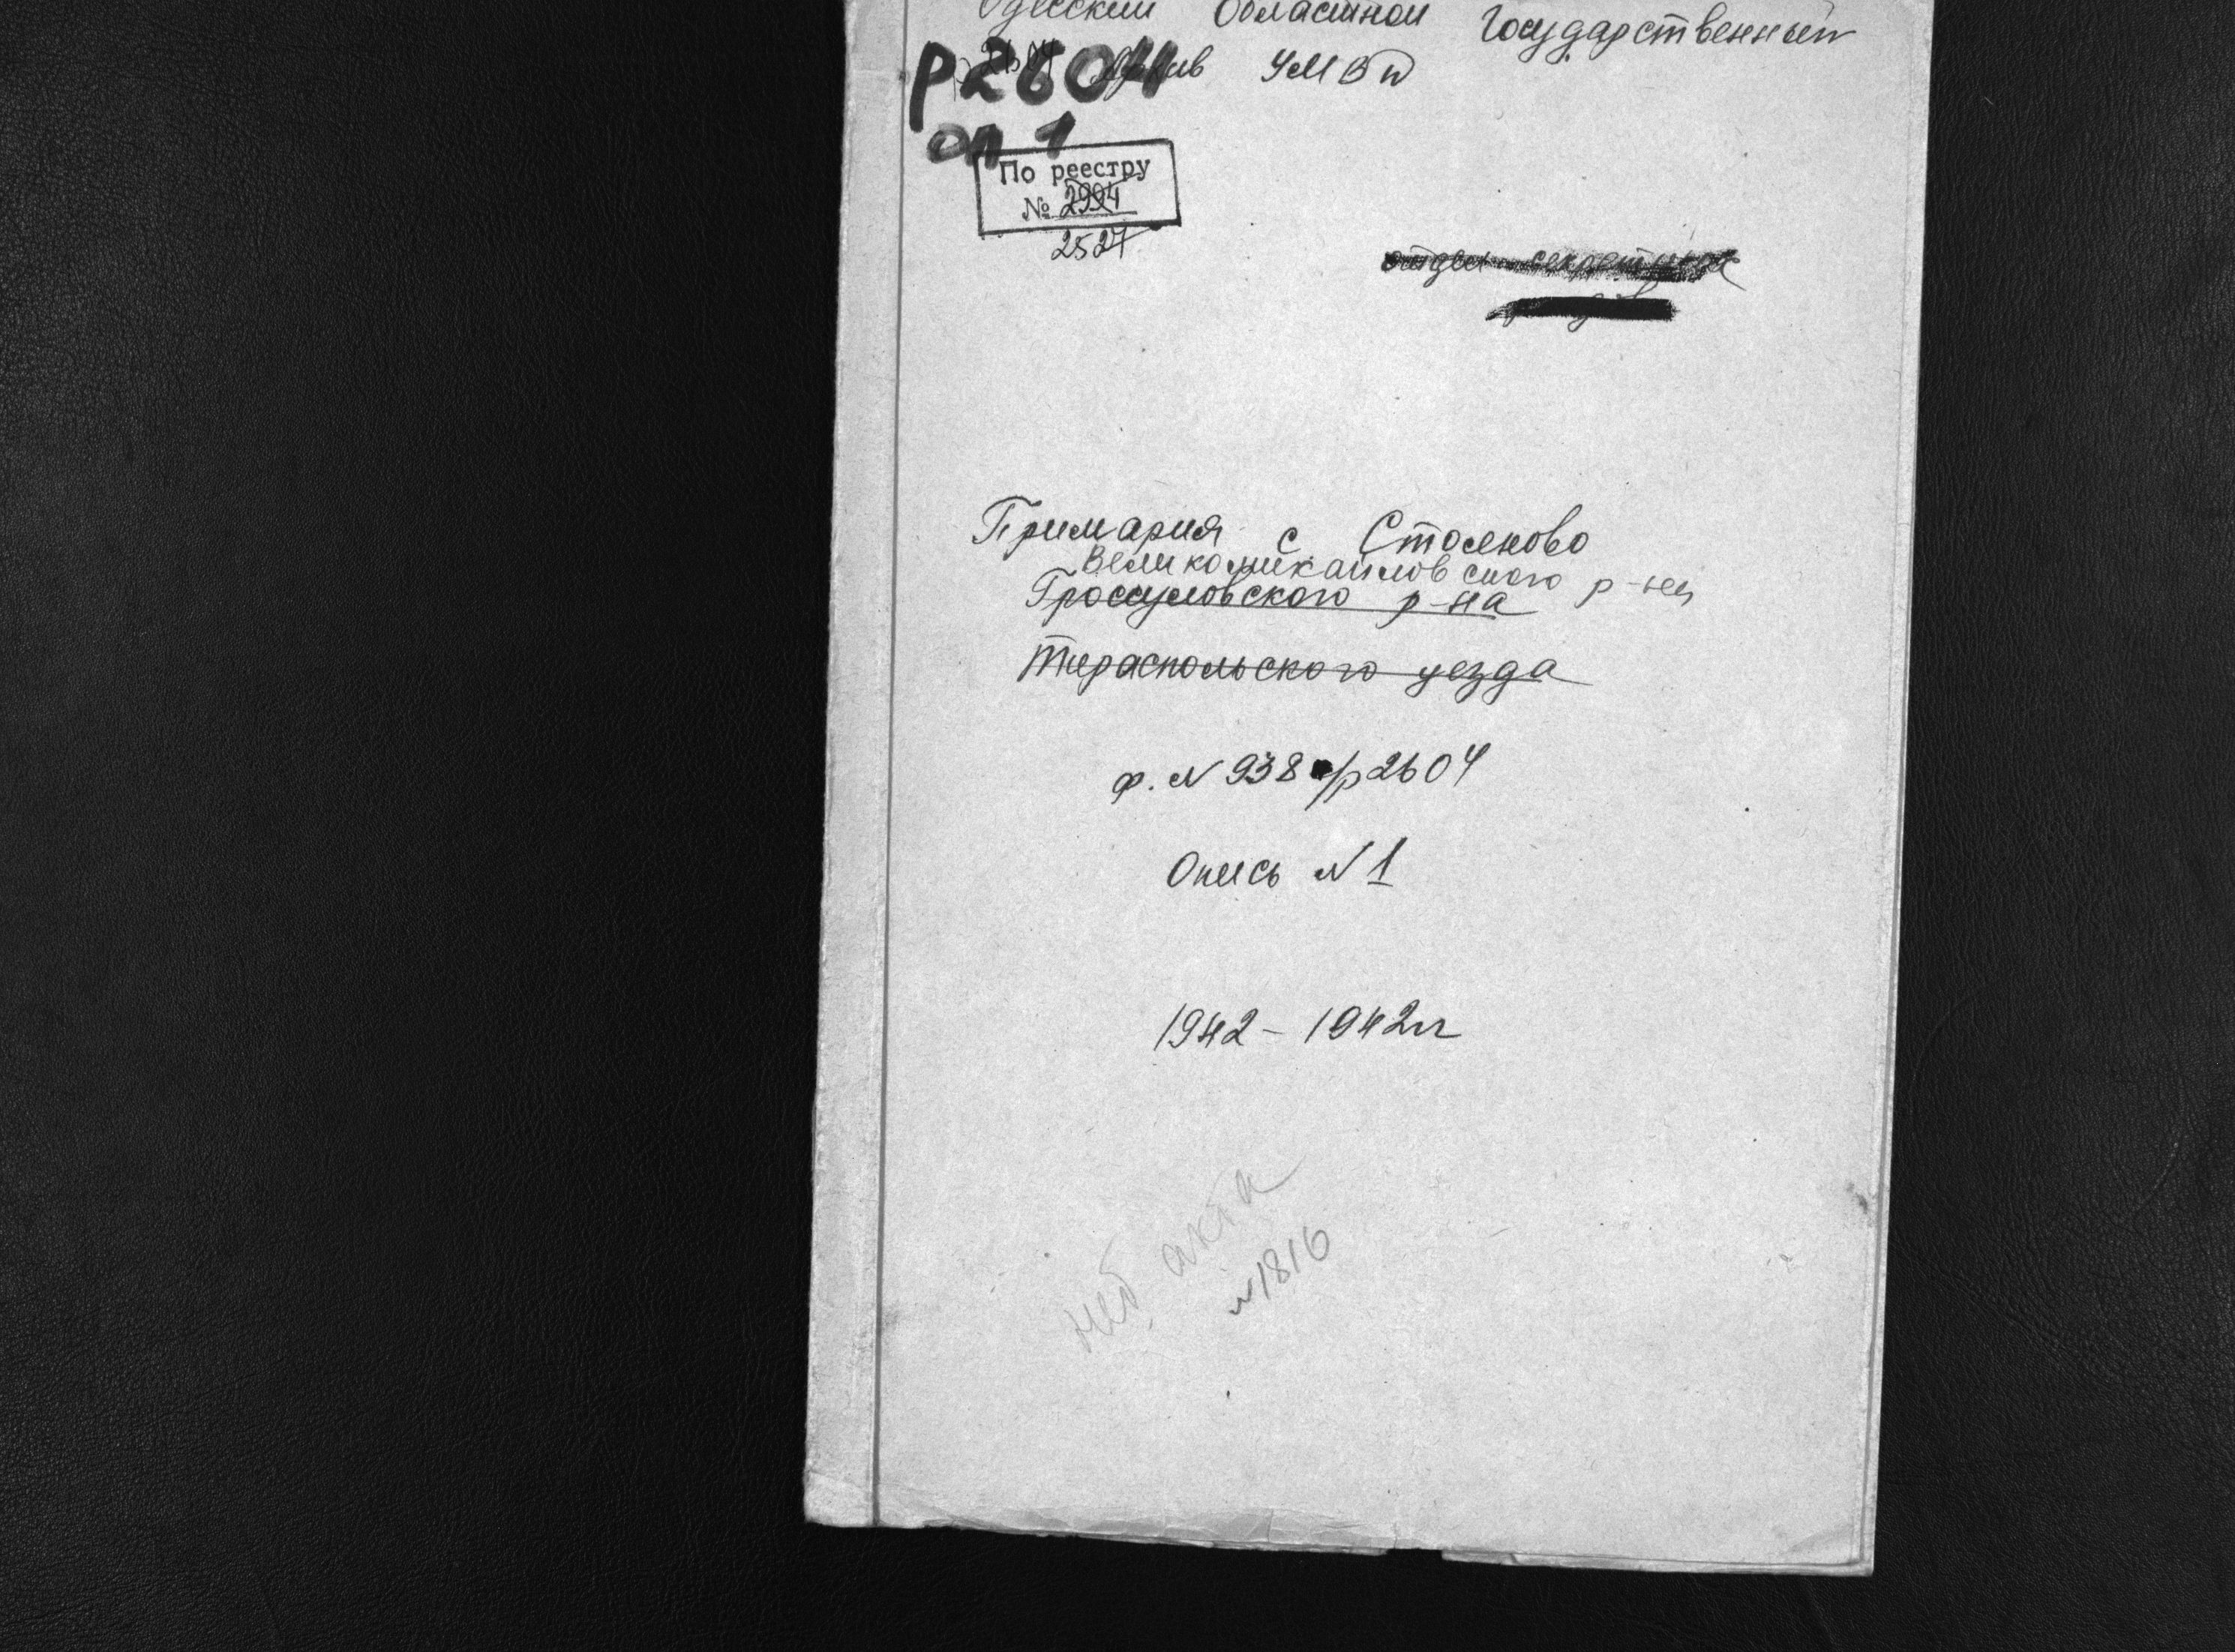 Одесский Областной Государственный
Р2604 Архив УМВД
2604
оп 1
По реестру
№ 2994
2527
отдел секретных
Примария с Стояново
Великомихайловского р-на
Гросуловского р-на
Тираспольского уезда
ф. N 938 /р2604
Опись N 1
1942 - 1942гг
нет акта
N1816